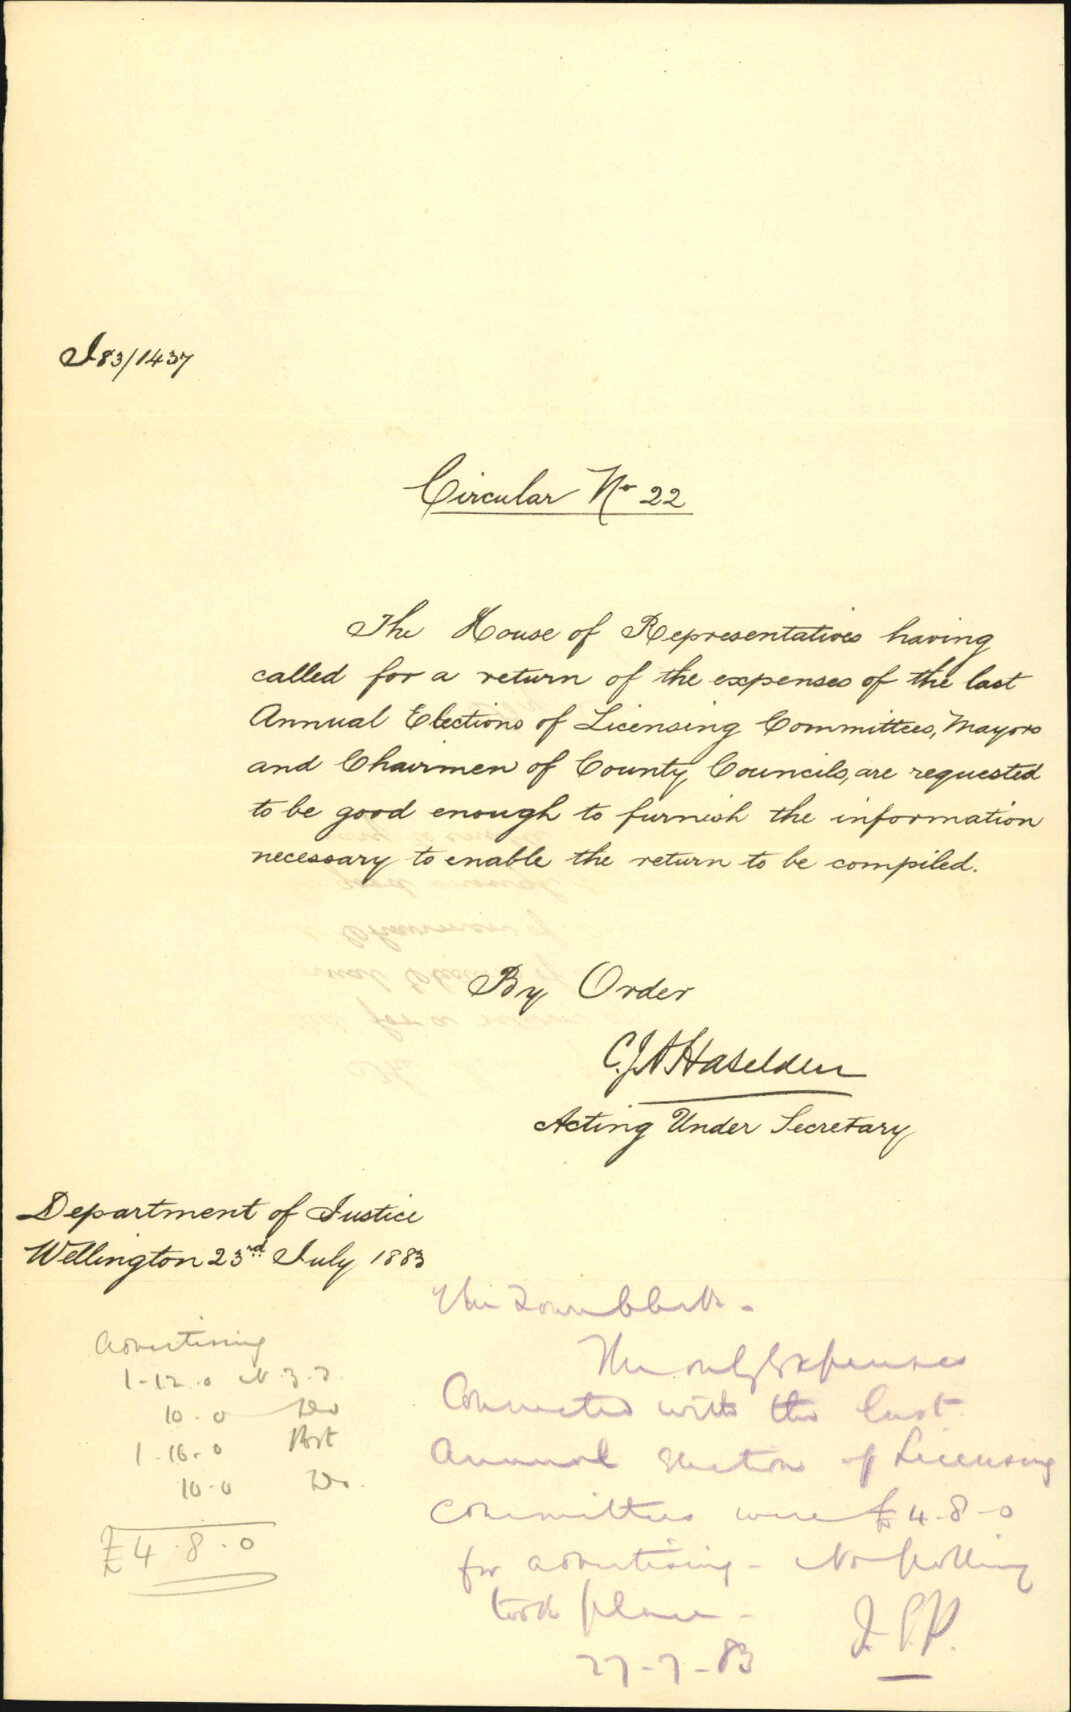 J83/1437
Circular No 22
The House of Representatives having
called for a return of the expenses of the last
Annual Elections of Licensing Committees, Mayors
and Chairmen of County Councils, are requested
to be good enough to furnish the information
necessary to enable the return to be compiled.
By Order
C.J.A. Haselden
Acting Under Secretary
Department of Justice
Wellington 23rd July 1883
The Town Clerk -
The only Expenses
Connected with the last
Annual Election of Licensing
Committees were £4-8-0
for advertising - No polling
took place -
27-7-83
Advertising
1-12.0 N.Z.T.
10-0 Do
1-16-0 Post
10-0 Do.
£4.8.0